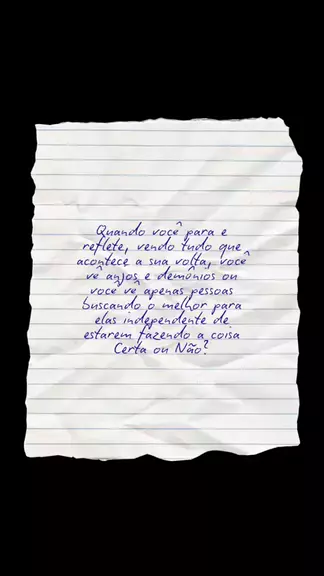 Quando você para e
reflete, vendo tudo que
acontece a sua volta, você
vê anjos e demônios ou
você vê apenas pessoas
buscando o melhor para
elas independente de
estarem fazendo a coisa
Certa ou Não?